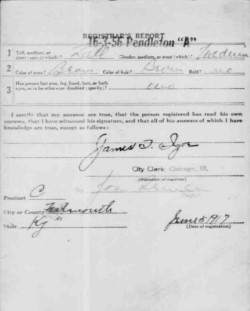 REGISTRAR'S REPORT
16-3-56 Pendleton "A"
1 Tall, medium, or short (specify which)? Tall Slender, medium, or stout (which)? Medium
2 Color of eyes? Brown Color of hair? Brown Bald? no
3 Has person lost arm, leg, hand, foot, or both eyes, or is he otherwise disabled (specify)? no
I certify that my answers are true, that the person registered has read his own
answers, that I have witnessed his signature, and that all of his answers of which I have
knowledge are true, except as follows:
James T.
City Clerk, Chicago, Ill.
(Signature of registrar)
Precinct C
City or County Falmouth
State Ky
June 5 1917
(Date of registration)